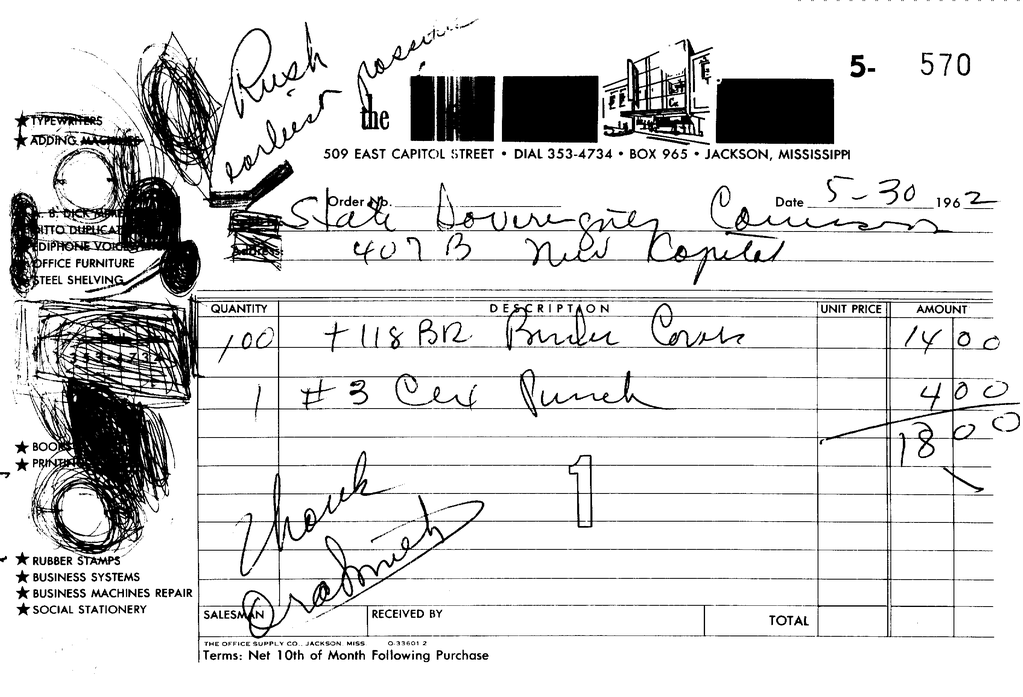 Rush
earliest possible
the
5- 570
509 EAST CAPITOL STREET • DIAL 353-4734 • BOX 965 • JACKSON, MISSISSIPPI
★ TYPEWRITERS
★ ADDING MACHINES
A. B. DICK
DITTO
EDIPHONE
★ OFFICE FURNITURE
★ STEEL SHELVING
★ BOOKS
★ PRINTING
★ RUBBER STAMPS
★ BUSINESS SYSTEMS
★ BUSINESS MACHINES REPAIR
★ SOCIAL STATIONERY
Order No. Date 5-30 1962
State Sovereignty
Address:
407 B New Capitol
QUANTITY DESCRIPTION UNIT PRICE AMOUNT
100 +118 BR Binder Covers 14 00
1 #3 Punch 4 00
18 00
1
Thank
Ora Smith
SALESMAN RECEIVED BY TOTAL
THE OFFICE SUPPLY CO., JACKSON, MISS. O-33601 2
Terms: Net 10th of Month Following Purchase